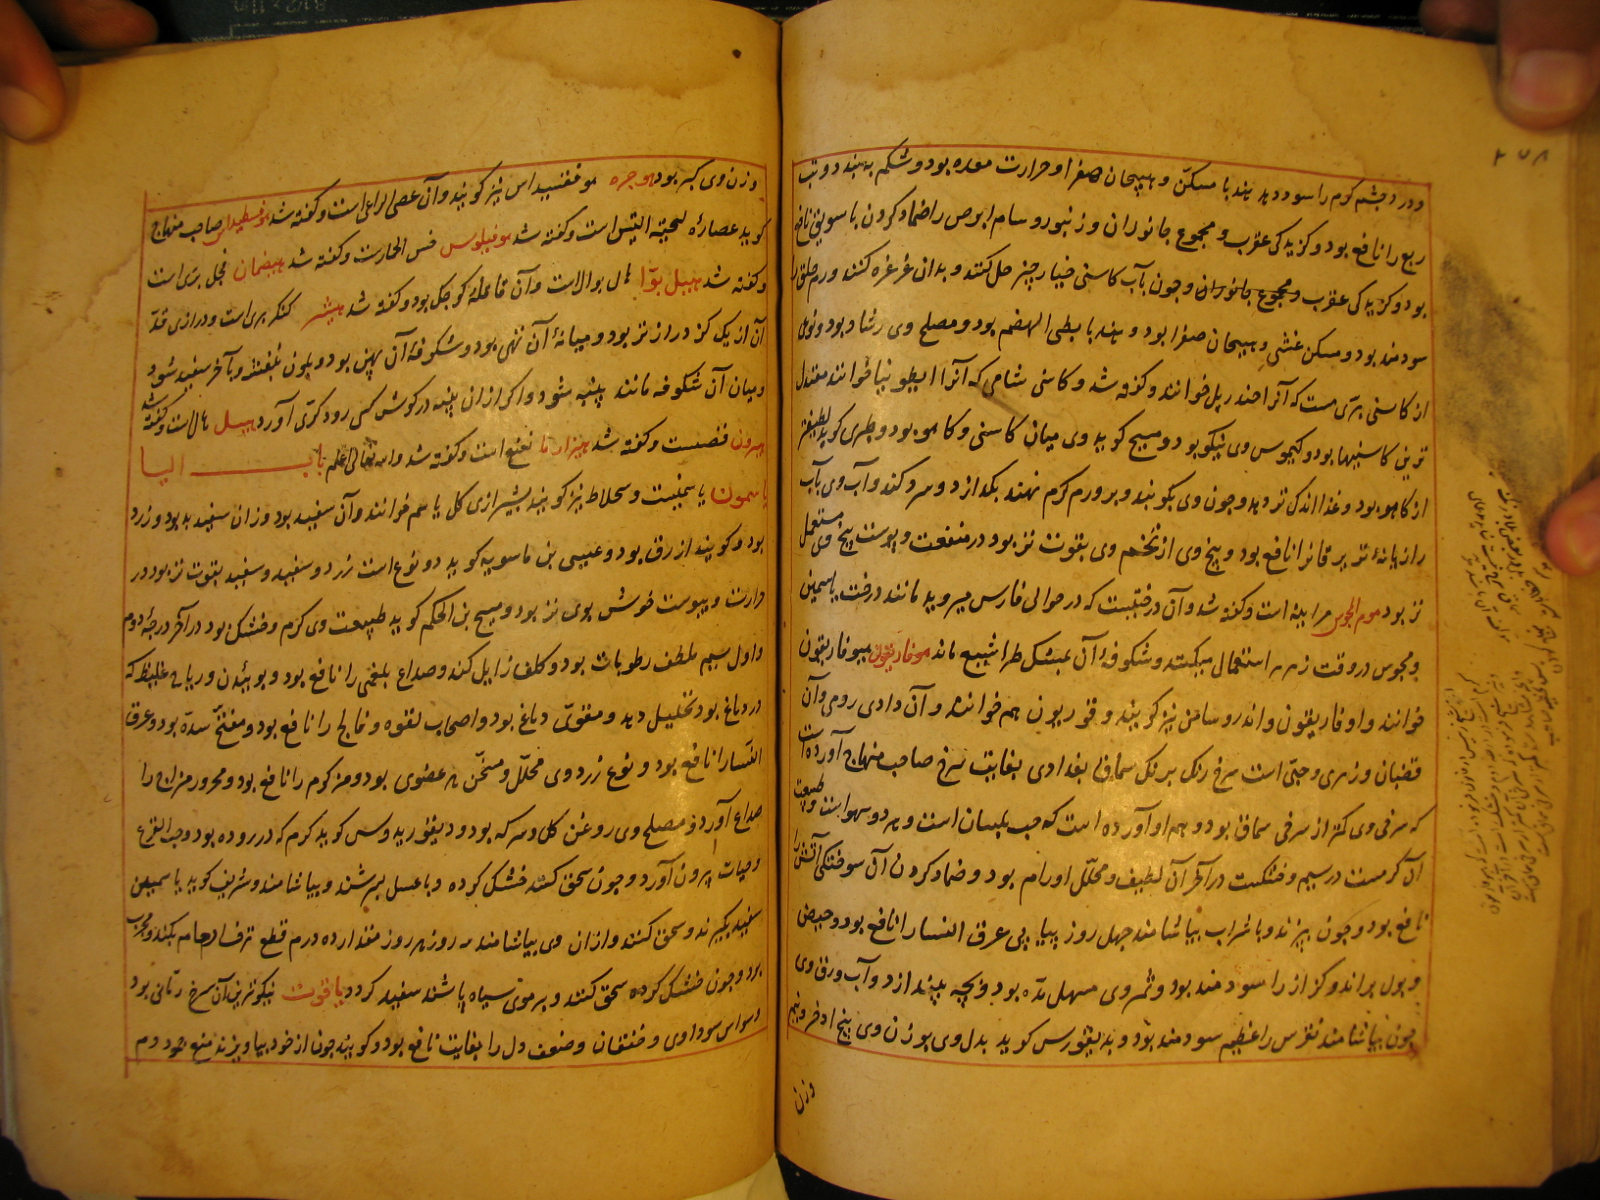 ودرد چشم کرم را سود دهد هندبا مسکن و هیجان صفرا و حرارت معده بود و شکم به بندد و تب
ربع را نافع بود و کزیدکی عقرب و مجموع جانوران و زنبور و سام ابرص را ضماد کردن با سویق نافع
بود و کزیدکی عقرب و مجموع جانوران و چون بآب کاسنی خیار چنبر حل کنند و بدان غرغره کنند ورم حلق را
سودمند بود و مسکن غشی و هیجان صفرا بود و هندبا بطی الهضم بود و مصلح وی رشاد بود و نوعی
از کاسنی بری هست که آنرا خندریل خوانند و کفته شد و کاسنی شامی که آنرا انطونیا خوانند معتدل
ترین کاسنیها بود و کیموس وی نیکو بود و مسیح کوید وی میان کاسنی و کاهو بود و طبری کوید لطیفتر
از کاهو بود و غذا اندک تر دهد و چون وی بکوبند و بر ورم کرم نهند بکدازد و سرد کند و آب وی بآب
رازیانهٔ تر یرقانرا نافع بود و بیخ وی از تخم وی بقوت تر بود در منفعت و پوست بیخ وی مستعمل
تر بود هوم المجوس مرانیه است و کفته شد و آن درختیست که در حوالی فارس میروید مانند درخت یاسمین
و مجوس در وقت زمزمه استعمال میکنند و شکوفهٔ آن بشکل طراشیع ماند هوفاریقون هیوفاریقون
خوانند و اوفاریقون و اندروسامن نیز کویند و قوریون هم خوانند و آن دادی رومی و آن
قضبان و زهری و حبی است سرخ رنک برنک سماق بغدادی بغایت سرخ صاحب منهاج آورده است
که سرخی وی کمتر از سرخی سماق بود و هم او آورده است که حب بلسان است و هر دو سهو است و طبیعت
آن کرمست در سیم و خشکست در آخر آن لطیف و محلل اورام بود و ضماد کردن آن سوختکی آتش را
نافع بود و چون بپزند و با شراب بیاشامند چهل روز پیاپی عرق النسا را نافع بود و حیض
و بول براند و کزاز را سودمند بود و ثمر وی مسهل مره بود و بچه بیندازد و آب ورق وی
چون بیاشامند نقرس را عظیم سودمند بود و دیسقوریدس کوید بدل وی بوزن وی بیخ اذخر و نیم
وزن
وزن وی کبر بود هوجره موقسیداس نیز کویند و آن عصی الراعی است و کفته شد هوقسطیداس صاحب منهاج
کوید عصارهٔ لحیة التیس است و کفته شد هوفیلوس خس الحمارست و کفته شد هیضمان فجل بری است
و کفته شد هیل بوا هال بوا است و آن قاقلهٔ کوچک بود و کفته شد هیشر کنکر بری است و درازی قد
آن از یک کز دراز تر بود و میانهٔ آن تهی بود و شکوفهٔ آن پهن بود و بلون بنفش و بآخر سفید شود
و میان آن شکوفه مانند پنبه شود و اکر از ان پنبه در کوش کسی رود کری آورد هیل هال است و کفته شد
هیرون قضبست و کفته شد هیزارما نعنع است و کفته شد والله تعالی اعلم باب الیا
یاسمون یاسمینست و سجلاط نیز کویند بشیرازی کل یاسم خوانند و آن سفید بود و زان سفید به بود و زرد
بود و کویند ازرق بود و عیسی بن ماسویه کوید دو نوع است زرد و سفید و سفید بقوت تر بود در
حرارت و یبوست خوش بوی تر بود و مسیح بن الحکم کوید طبیعت وی کرم و خشک بود در آخر درجهٔ دوم
و اول سیم ملطف رطوبات بود و کلف زایل کند و صداع بلغمی را نافع بود و بوئیدن و ریاح غلیظ که
در دماغ بود تحلیل دهد و مقوی دماغ بود و اصحاب لقوه و فالج را نافع بود و مفتح سده بود و عرق
النسا را نافع بود و نوع زرد وی محلل و مسخن هر عضوی بود و مزکوم را نافع بود و محرور مزاج را
صداع آورد و مصلح وی روغن کل و سرکه بود و دیسقوریدس کوید کرم که در روده بود و حب القرع
و حیات بیرون آورد و چون سحق کنند خشک کرده و با عسل بسرشند و بیاشامند و شریف کوید یاسمین
سفید بکیرند و سحق کنند و از ان وی بیاشامند سه روز هر روز مقدار ده درم قطع نزف ارحام بکند و مجرب
بود و چون خشک کرده سحق کنند و بر موی سیاه پاشند سفید کردد یاقوت نیکوترین آن سرخ رمانی بود
وسواس سوداوی و خفقان و ضعف دل را بغایت نافع بود و کویند چون از خود بیاویزند منع جمود دم